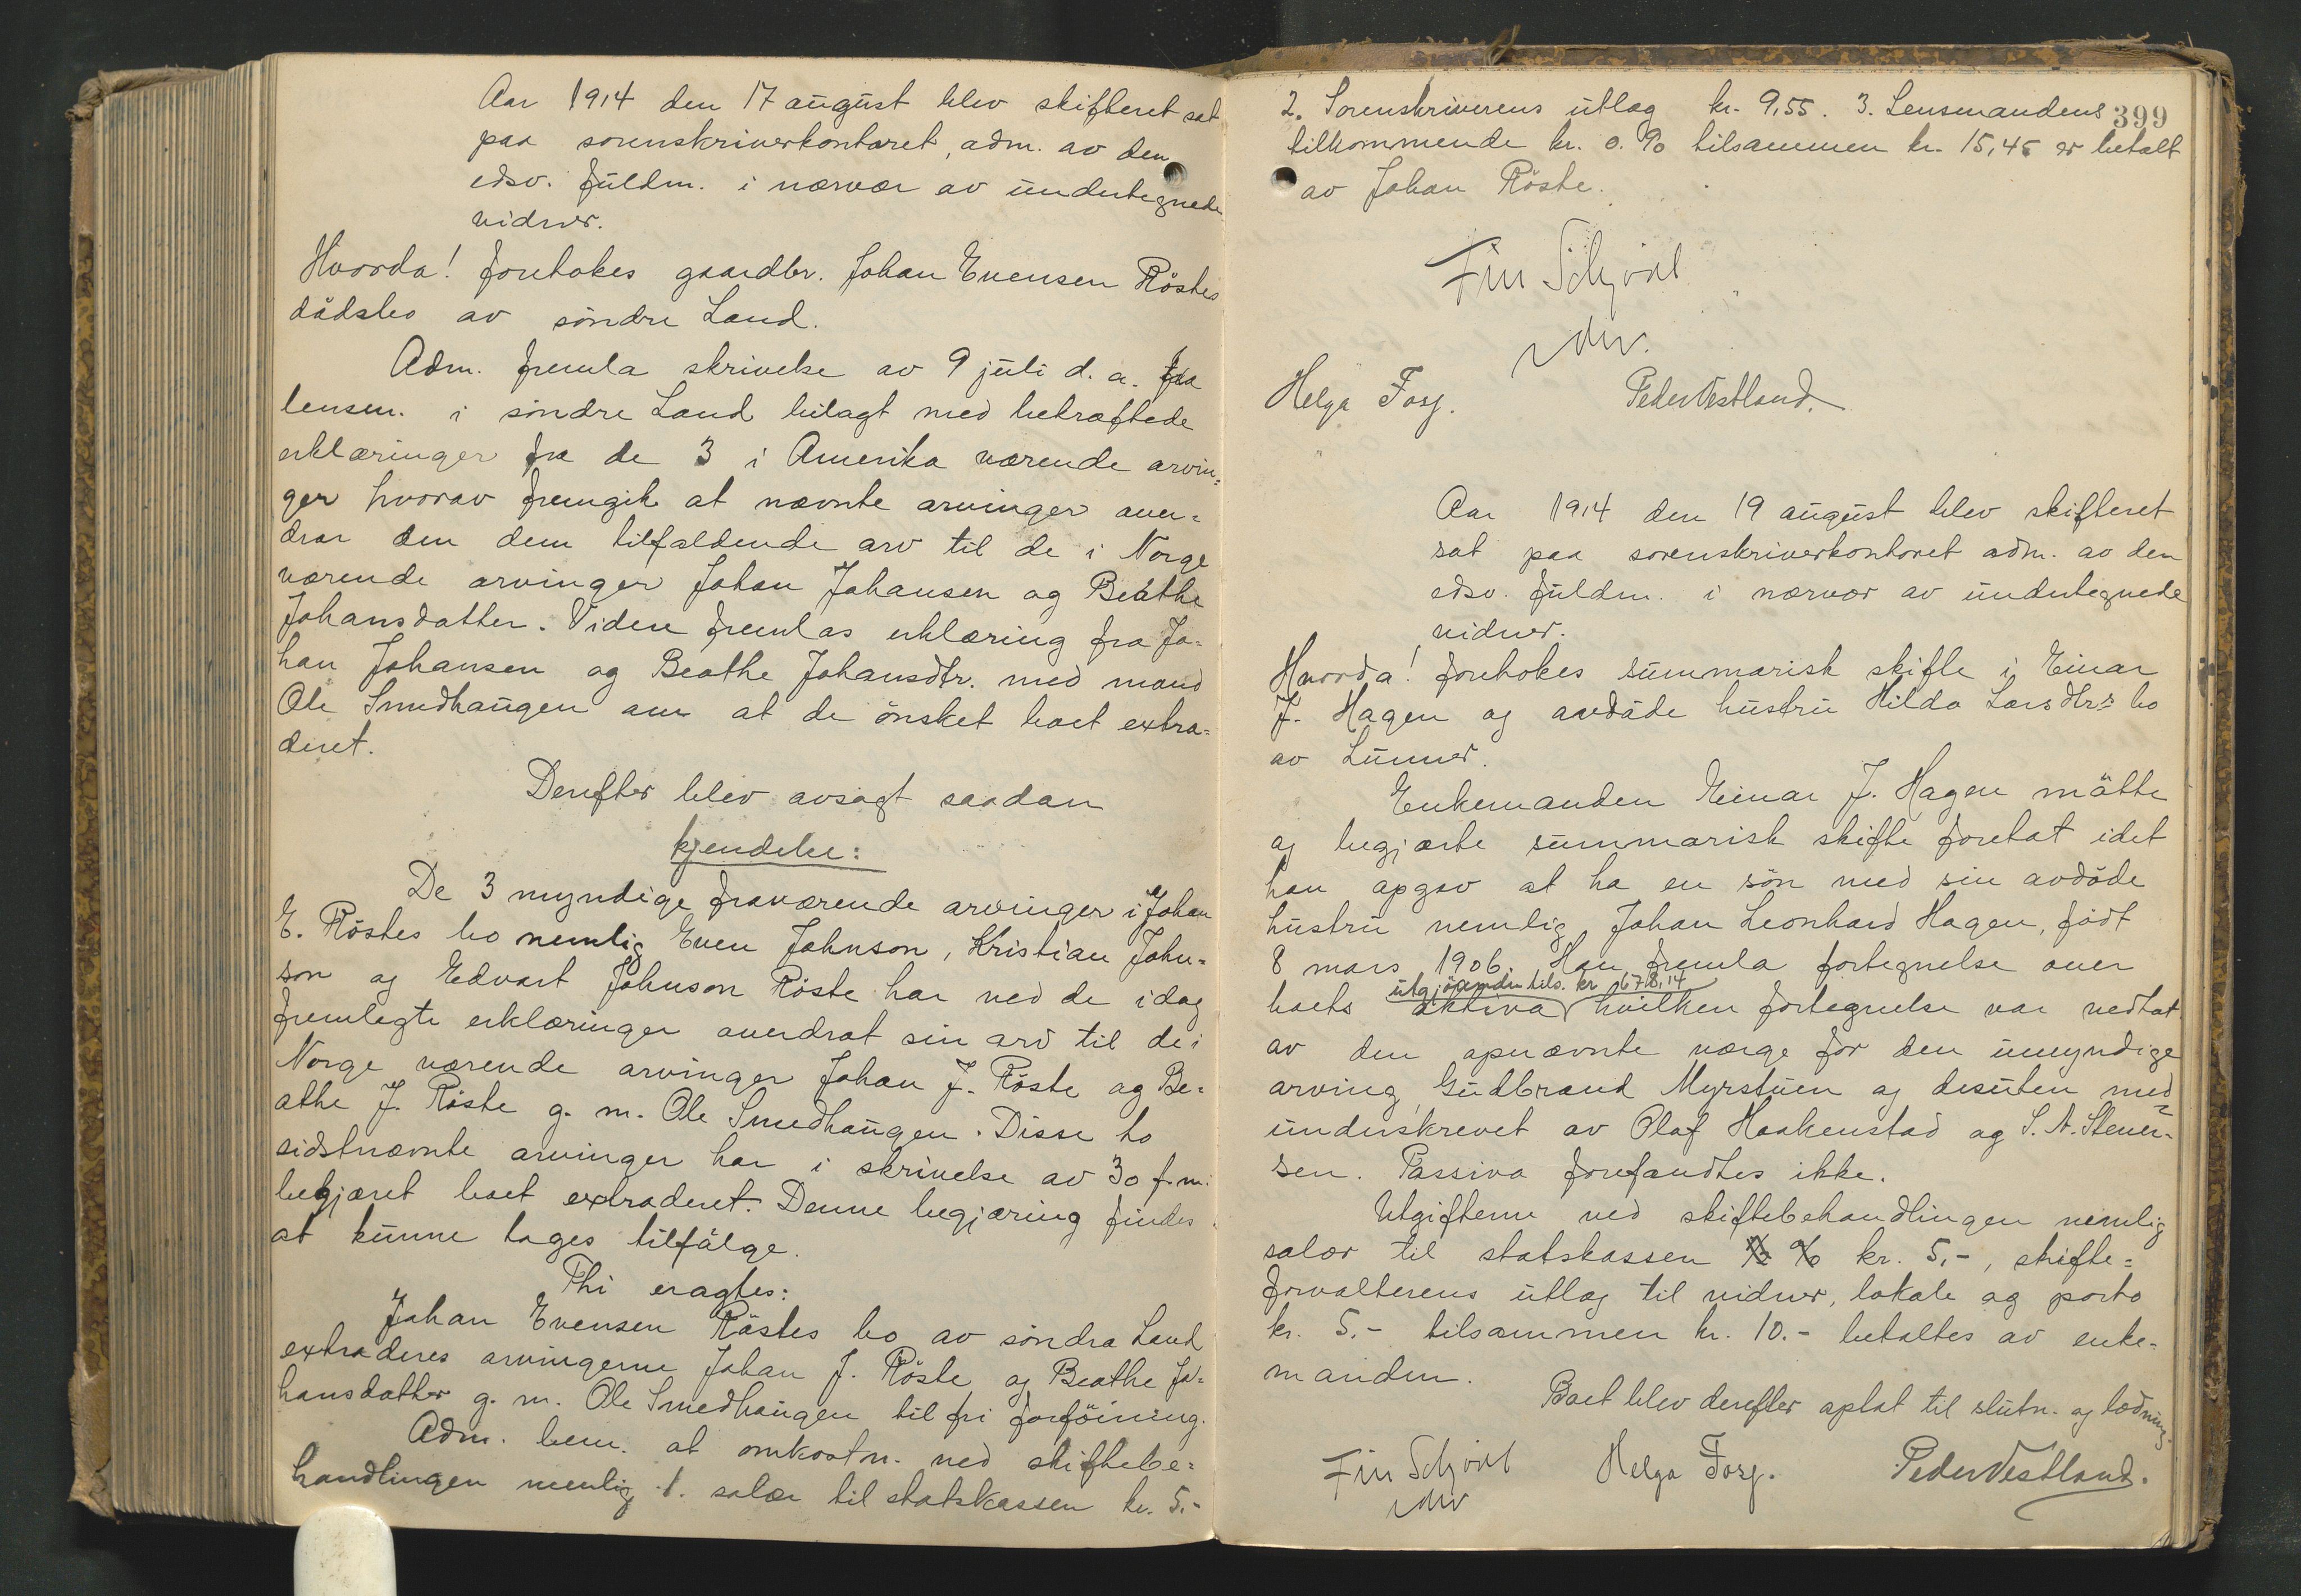 Aar 1914 den 17 august blev skifteret sat
paa sorenskriverkontoret, adm. av den
edsv. fuldm. i nærvær av undertegnede
vidner.
Hvorda! foretokes gaardbr. Johan Evensen Röstes
dödsbo av söndre Land.
Adm. fremla skrivelse av 9 juli d. a. fra
lensm. i söndre Land bilagt med bekræftede
erklæringer fra de 3 i Amerika værende arvin=
ger hvorav fremgik at nævnte arvinger over=
drar den dem tilfaldende arv til de i Norge
værende arvinger Johan Johansen og Beathe
Johansdatter. Videre fremlas erklæring fra Jo=
han Johansen og Beathe Johansdtr. med mand
Ole Smedhaugen om at de önsket boet extra=
deret.
Derefter blev avsagt saadan
kjendelse:
De 3 myndige fraværende arvinger i Johan
E. Röstes bo nemlig Even Johnson, Kristian John=
son og Edvart Johnson Röste har ved de idag
fremlagte erklæringer overdrat sin arv til de i
Norge værende arvinger Johan J. Röste og Be=
athe J. Röste g. m. Ole Smedhaugen. Disse to
sidstnævnte arvinger har i skrivelse av 30 f. m.
begjæret boet extraderet. Denne begjæring findes
at kunne tages tilfölge.
Thi eragtes:
Johan Evensen Röstes bo av söndre Land
extraderes arvingerne Johan J. Röste og Beathe Jo=
hansdatter g. m. Ole Smedhaugen til fri forföining.
Adm. bem. at omkostn. ved skiftebe=
handlingen nemlig 1. salær til statskassen kr. 5.-
399
2. Sorenskriverens utlæg kr. 9,55. 3. Lensmandens
tilkommende kr. 0.90 tilsammen kr. 15,45 er betalt
av Johan Röste.
Fin Schjöll
Helga Forg. Peder Vestland.
Aar 1914 den 19 august blev skifteret
sat paa sorenskriverkontoret adm. av den
edsv. fuldm. i nærvær av undertegnede
vidner.
Hvorda! foretokes summarisk skifte i Einar
J. Hagen og avdöde hustru Hilda Larsdtr.s bo
av Lunner.
Enkemanden Einar J. Hagen mötte
og begjærte summarisk skifte foretat idet
han opgav at ha en sön med sin avdöde
hustru nemlig Johan Leonhard Hagen, födt
8 mars 1906. Han fremla fortegnelse over
utgjörende tils. kr. 678,14
boets aktiva hvilken fortegnelse var vedtat
av den opnævnte værge for den umyndige
arving, Gudbrand Myrstuen og desuten med=
underskrevet av Olaf Haakenstad og S. A. Stener=
sen. Passiva forefandtes ikke.
Utgifterne ved skiftebehandlingen nemlig
salær til statskassen kr. 5,-, skifte=
forvalterens utlæg til vidner, lokale og porto
kr. 5.- tilsammen kr. 10.- betaltes av enke=
manden.
Boet blev derefter optat til slutn. og lodning.
Fin Schjöll Helga Forg. Peder Vestland.